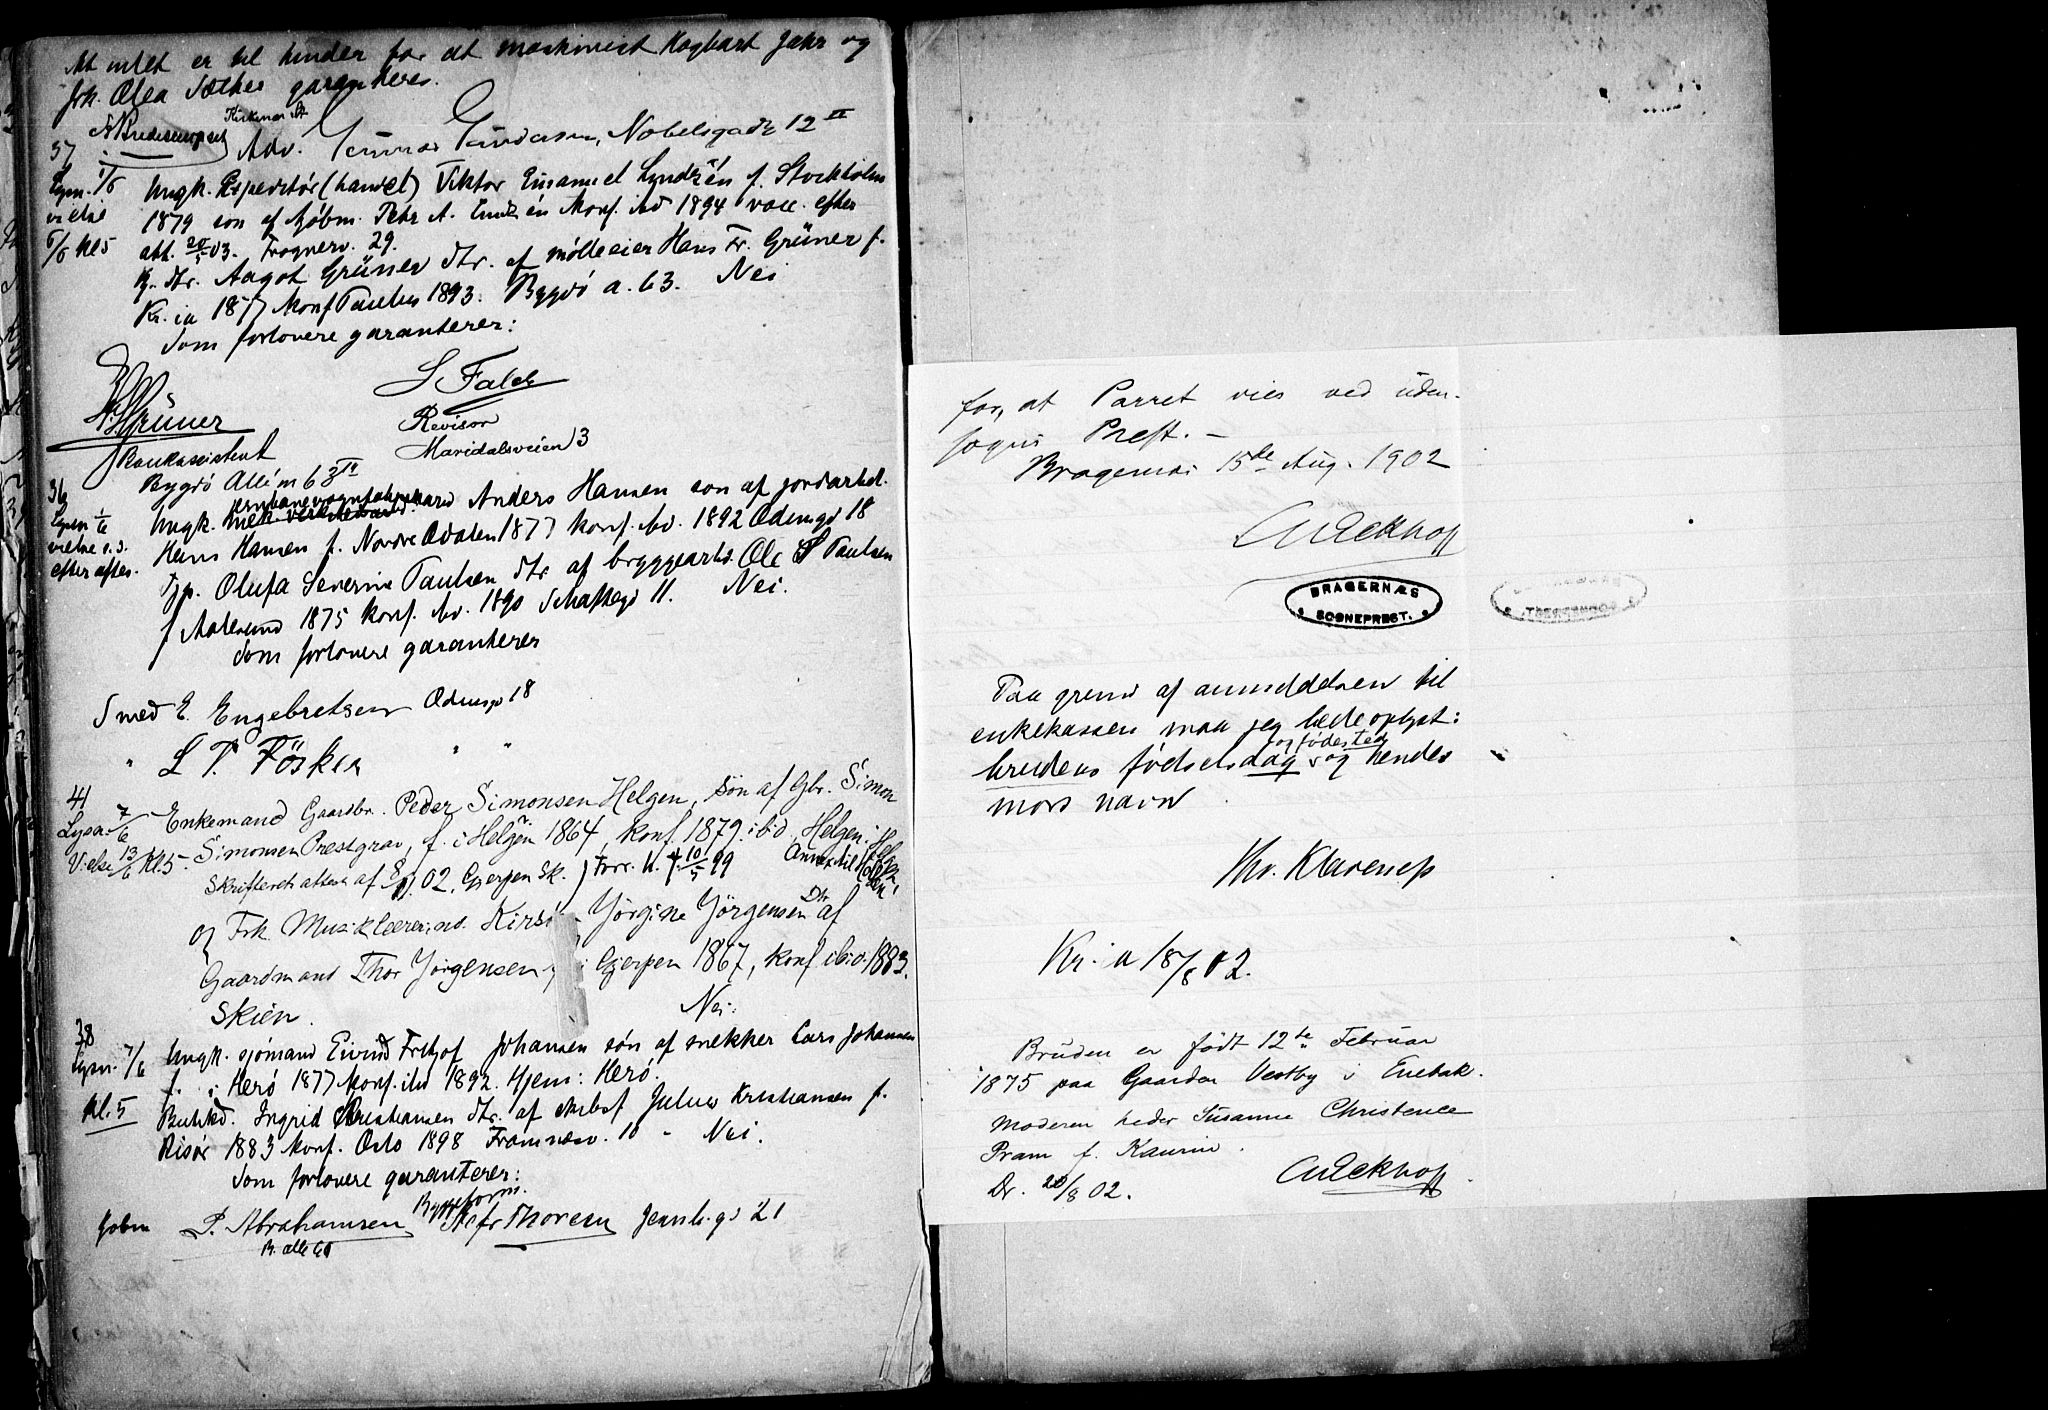 At intet er til hinder for at maskinist Hagbart Jahr og
frk. Olea Sæther garanteres.
Adv. Gunnar Gundersen, Nobelsgade 12 II
37
Lysn. 1/6
vielse
6/6 kl 5
Ungk. Expeditør (handel) Viktor Emanuel Lyndzén f. Stockholm
1879 søn af kjøbm. Petr A. Konf. ibd 1894 vacc. efter
att. 20/5 03. Frognerv. 29.
Aagot Grüner dtr. af mølleeier Hans Fr. Grüner f.
Kr.ia 1877 konf Paulus 1893. Bygdö a. 63. Nei
Som forlovere garanterer:
Grüner
S Falch
Bankassistent
Revisor
Bygdö Allé nr 63
Maridalsveien 3
36
Lysn 1/6
vielse
efter aftes.
Ungk. Anders Hansen søn af jordarbd.
Hans Hansen f. Nordre Odalen 1877 konf. ibd. 1892 Odinsgd 18
Olufa Severine Paulsen dtr af bryggearb. Ole S Paulsen
f Aalesund 1875 konf. ibd. 1890 Schaftegd 11. Nei.
Som forlovere garanterer
Smed E. Engebretsen Odinsgd 18
" L P. " "
41
Lysn. 7/6
Vielse 13/6 kl. 5
Enkemand Gaardbr. Peder Simonsen Helgen, Søn af Gbr. Simon
Simonsen Prestgrav, f. i Helgen 1864, konf. 1879 ibid, Helgen
Skifteret attest af 02, Gjerpen Sk. Forr. h. † 10/5 99
Annex til Holden
og Frk. Musiklærerind. Jörgine Jörgensen Dtr. af
Gaardmand Thor Jörgensen Gjerpen 1867, konf ibid. 1883.
Skien. Nei.
38
Lysn. 7/6
Kl. 5
Ungk. sjömand Eivind Fritjof Johansen sön af snekker Lars Johansen
f. i Herö 1877 konf. ibd 1892. Hjem: Herö.
Butikd. Ingrid Kristiansen dtr. af Julius Kristiansen f.
Risör 1883 konf. Oslo 1898 Framnæsv. 10 - Nei.
Som forlovere garanterer:
Kjøbm P. Abrahamsen
B. alle 60
Byggeform.
Thoresen Jensb.gd 21
for, at Parret vies ved uden-
sogns Prest. -
Bragernæs 15de Aug. 1902
CMEckhoff
BRAGERNÆS
SOGNEPREST.
Paa grund af anmeldelsen til
enkekassen maa jeg bede oplyst:
brudens fødselsdag og fødested og hendes
mors navn
Thv. Klaveness
Kr.ia 18/8 02.
Bruden er født 12te Februar
1875 paa Gaarden Vestby i Enebak.
Moderen heder Susanne Christence
Pram f. Kaurin.
Dr. 20/8 02.
CMEckhoff